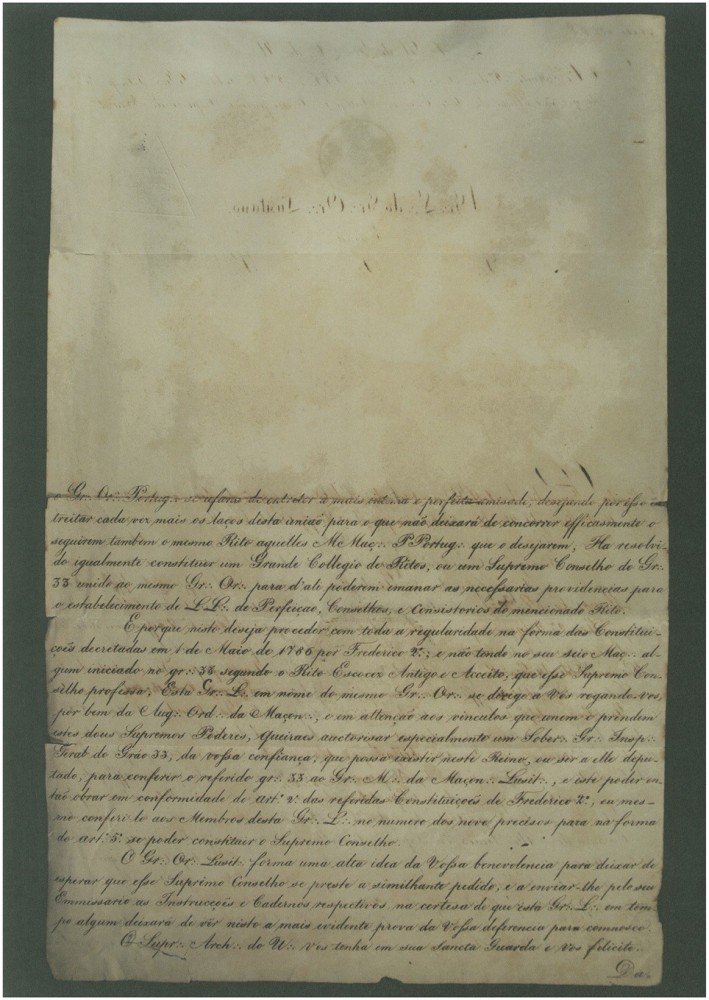 o Gr∴ Or∴ Portug∴ se ufana de entreter a mais intima e perfeita amisade; desejando por isso es
treitar cada vez mais os laços desta união para o que não deixará de concorrer efficasmente o
seguirem tambem o mesmo Rito aquelles M Maç∴ P Portug∴ que o desejarem, Ha resolvi-
do igualmente constituir um Grande Collegio de Ritos, ou um Supremo Conselho do Gr∴
33 unido ao mesmo Gr∴ Or∴ para d'ali poderem emanar as necessarias providencias para
o estabelecimento de LL∴ de Perfeição, Conselhos, e Consistorios do mencionado Rito.
E porque nisto deseja proceder com toda a regularidade na forma das Constitui-
ções decretadas em 1 de Maio de 1786 por Frederico 2º; e não tendo no seu seio Maç∴ al-
gum iniciado no gr∴ 33 segundo o Rito Escocez Antigo e Acceito, que esse Supremo Con-
selho professa; Esta Gr∴ L∴ em nome do mesmo Gr∴ Or∴ se dirige a Vós rogando-vos,
por bem da Aug∴ Ord∴ da Maçon∴, e em attenção aos vinculos que unem e prendem
estes dous Supremos Poderes, queiraes auctorisar especialmente um Sober∴ Gr∴ Insp∴
Geral do Gráo 33, da vossa confiança, que possa existir neste Reino, ou ser a elle depu-
tado, para conferir o referido gr∴ 33 ao Gr∴ M∴ da Maçon∴ Lusit∴, e este poder en-
tão obrar em conformidade do artº 2º das referidas Constituições de Frederico 2º, ou mes-
mo conferi-lo aos Membros desta Gr∴ L∴ no numero dos nove precisos para na forma
do artº 5º se poder constituir o Supremo Conselho.
O Gr∴ Or∴ Lusit∴ forma uma alta idea da Vossa benevolencia para deixar de
esperar que esse Suprêmo Conselho se preste a similhante pedido, e a enviar-lhe pelo seu
Emmissario as Instrucções e Cadernos respectivos na certesa de que esta Gr∴ L∴ em tem-
po algum deixará de vêr nisto a mais evidente prova da Vossa deferencia para comnosco.
O Supr∴ Arch∴ do U∴ vos tenha em sua Sancta Guarda e vos felicite.